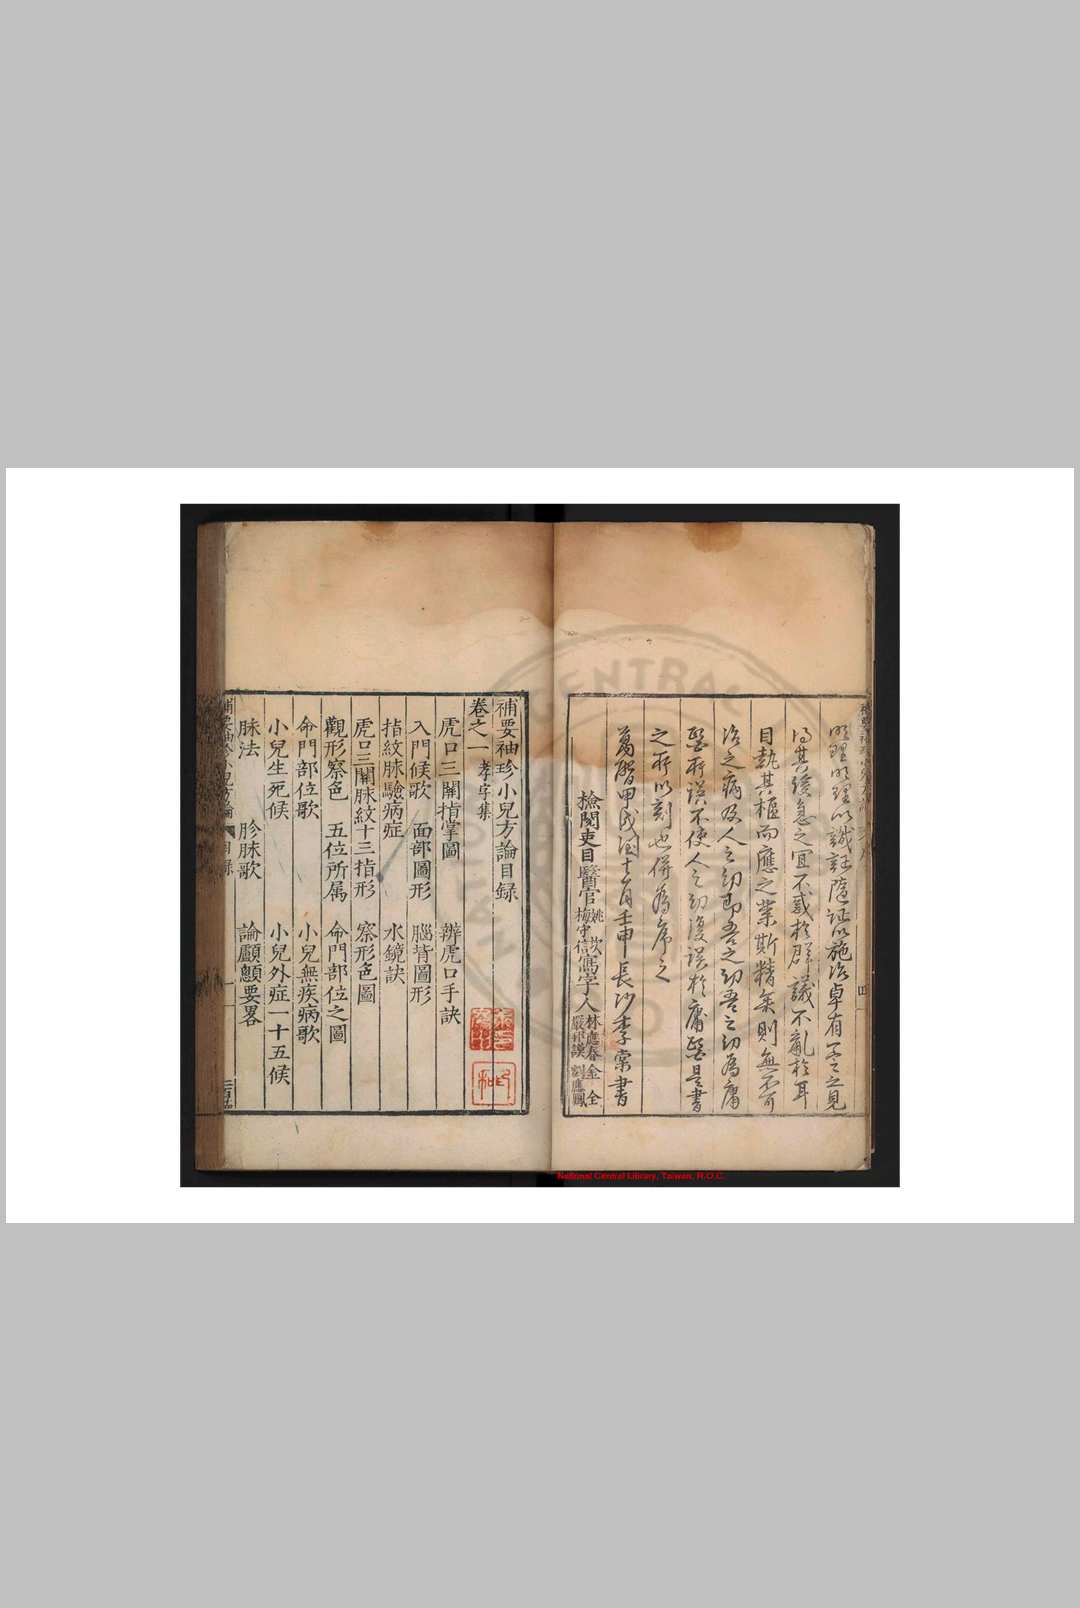 明理明理以識証隨証以施治卓有一定之見
得其緩急之宜不惑於群議不亂於耳
目執其樞而應之業斯精矣則無不可
治之病及人之幼即吾之幼吾之幼為庸
醫所誤不使人之幼復誤於庸醫是書
之所以刻也併為序之
萬曆甲戌冬十一月壬申長沙李棠書
檢閱吏目醫官姚 梅守信寫字人林應春金全嚴 劉應鳳
補要袖珍小兒方論目録
卷之一孝字集
虎口三關指掌圖 辨虎口手訣
入門候歌 面部圖形 腦背圖形
指紋脉驗病症 水鏡訣
虎口三關脉紋十三指形 察形色圖
觀形察色 五位所属 命門部位之圖
命門部位歌 小兒無疾病歌
小兒生死候 小兒外症一十五候
脉法 胗脉歌 論顱顖要畧
補要袖珍小兒方論 目録 一
CENTRAL
National Central Library, Taiwan, R.O.C.